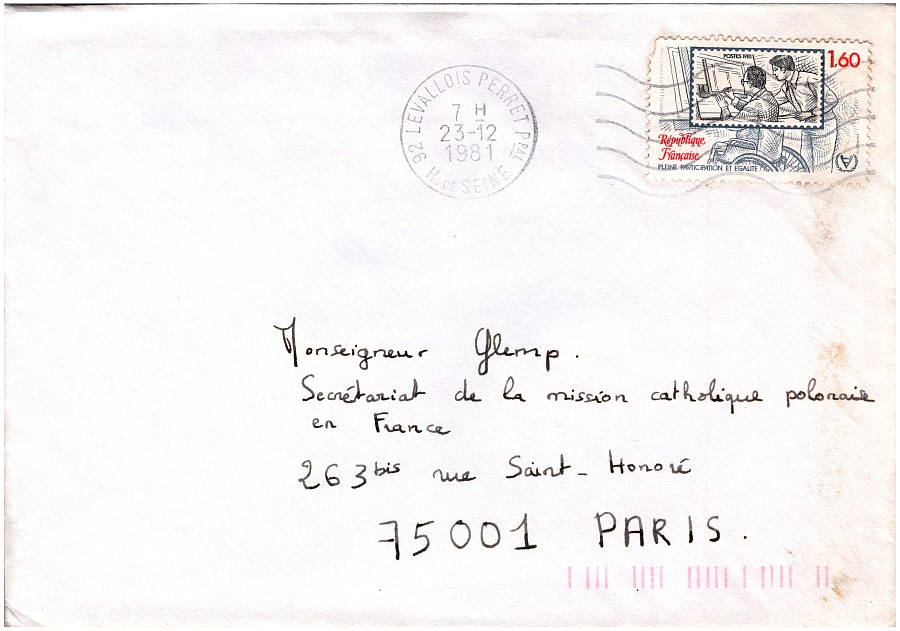 POSTES 1981
1.60
République
Française
PLEINE PARTICIPATION ET EGALITE
92 LEVALLOIS PERRET PPAL
7 H
23-12
1981
H. DE SEINE
Monseigneur Glemp.
Secrétariat de la mission catholique polonaise
en France
263 bis rue Saint-Honoré
75001 PARIS.